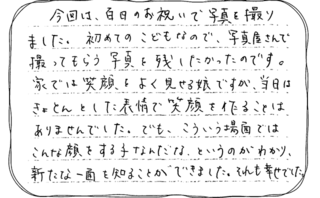 今回は、百日のお祝いで写真を撮り
ました。初めてのこどもなので、写真屋さんで
撮ってもらう写真を残したかったのです。
家では笑顔をよく見せる娘ですが、当日は
きょとんとした表情で笑顔を作ることは
ありませんでした。でも、こういう場面では
こんな顔をする子なんだな、というのがわかり、
新たな一面を知ることができました。それも幸せでした